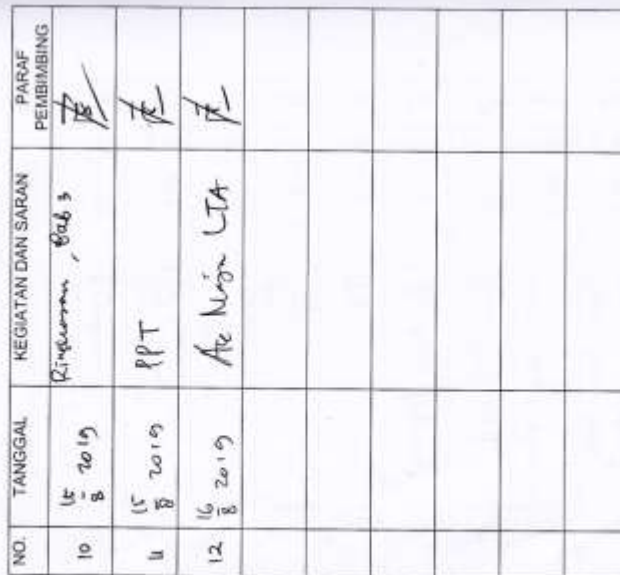 NO. TANGGAL KEGIATAN DAN SARAN PARAF PEMBIMBING
10 15/8 2019 Ringkasan, Bab 3
11 15/8 2019 PPT
12 16/8 2019 Acc Maju LTA